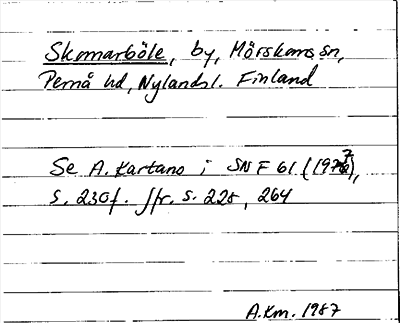 Skomarböle, by, Mörskoms sn,
Pernå hd, Nylands l. Finland
Se A. Kartano i SNF 61 (1977),
s. 230f. Jfr. s. 228, 264
A.Km. 1987